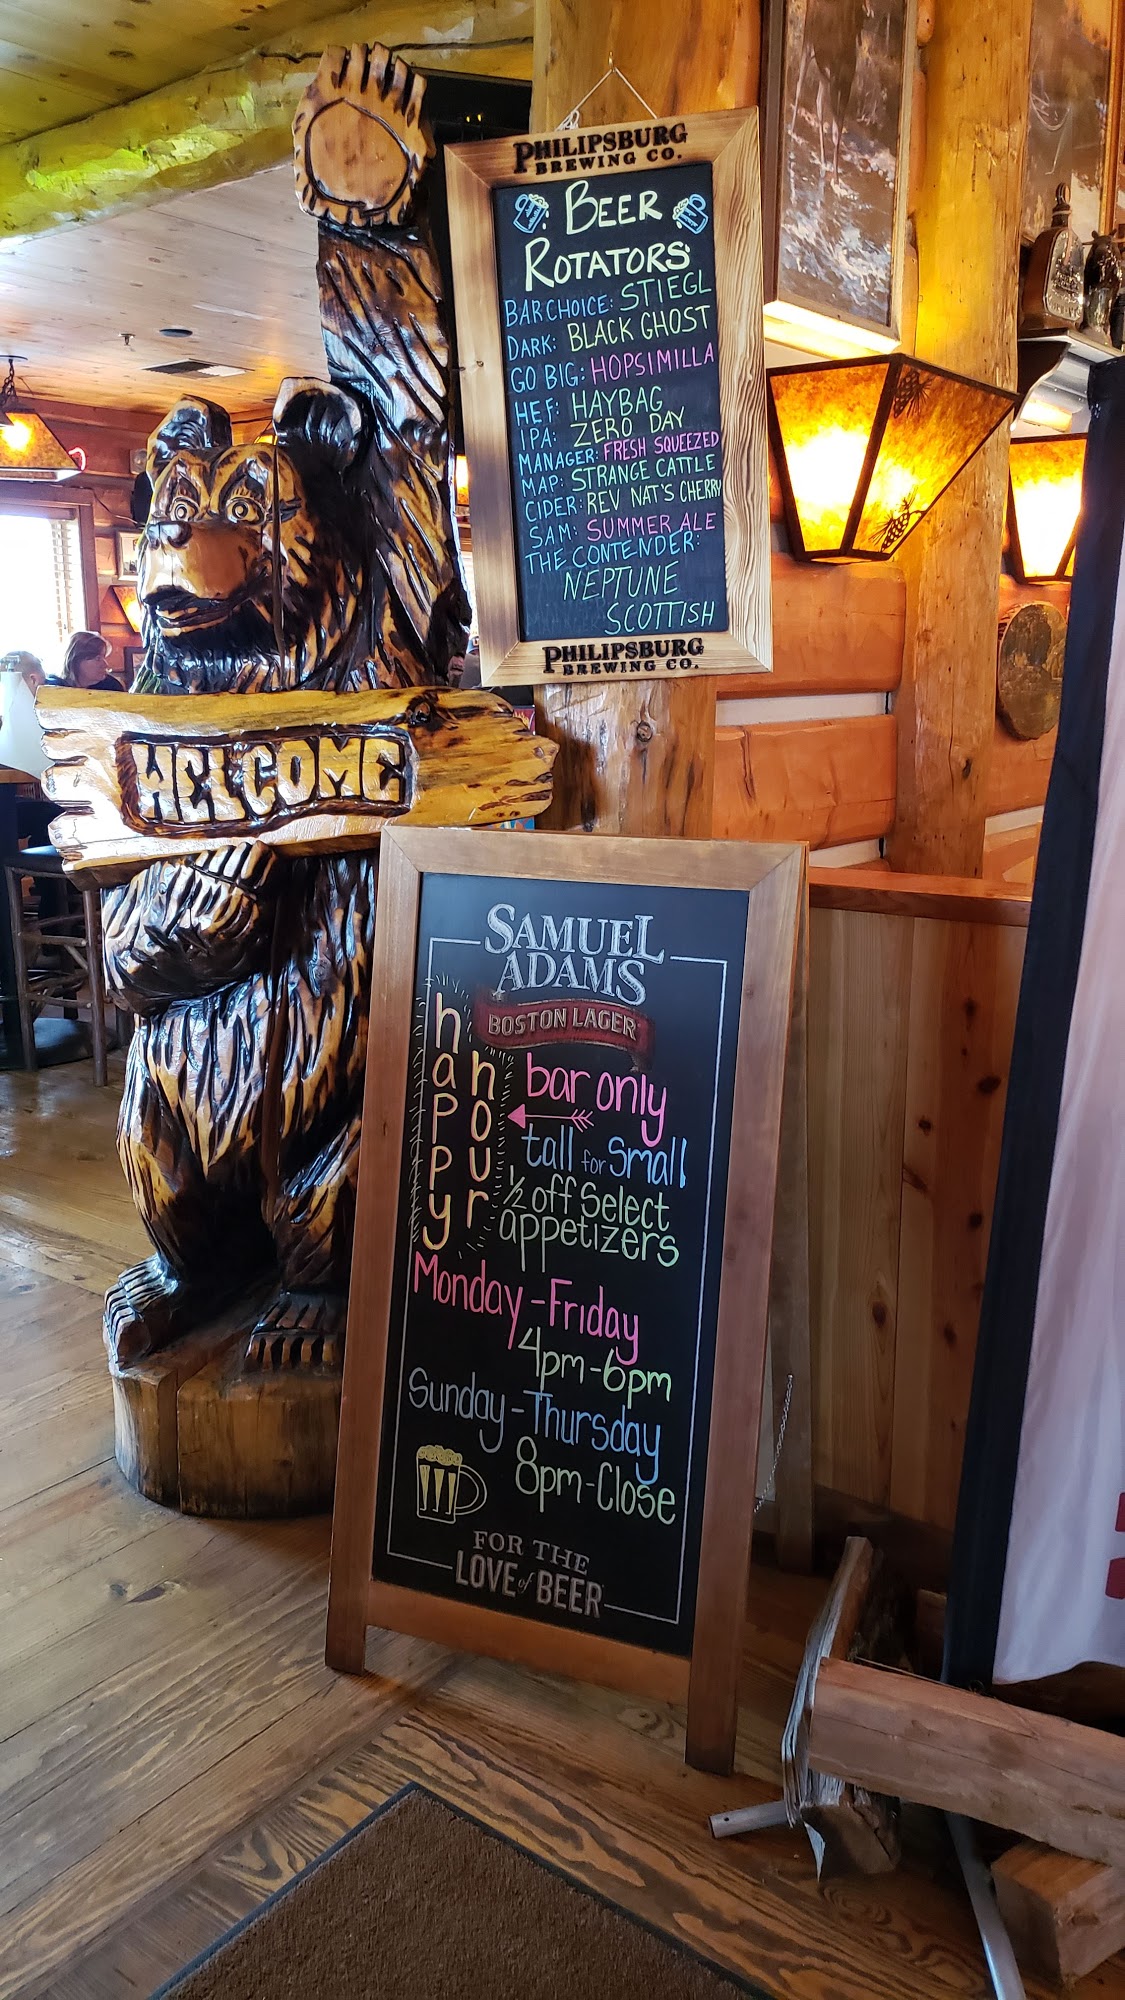 PHILIPSBURG
BREWING CO.
BEER
ROTATORS
BAR CHOICE: STIEGL
DARK: BLACK GHOST
GO BIG: HOPSIMILLA
HEF: HAYBAG
IPA: ZERO DAY
MANAGER: FRESH SQUEEZED
MAP: STRANGE CATTLE
CIDER: REV NAT'S CHERRY
SAM: SUMMER ALE
THE CONTENDER:
NEPTUNE
SCOTTISH
PHILIPSBURG
BREWING CO.
WELCOME
SAMUEL
ADAMS
BOSTON LAGER
happy
hour
bar only
tall for Small
½ off Select
appetizers
Monday-Friday
4pm-6pm
Sunday-Thursday
8pm-Close
FOR THE
LOVE of BEER